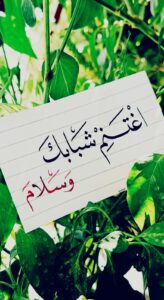 اغْتَنِمْ شَبَابك
وَسَلامَ